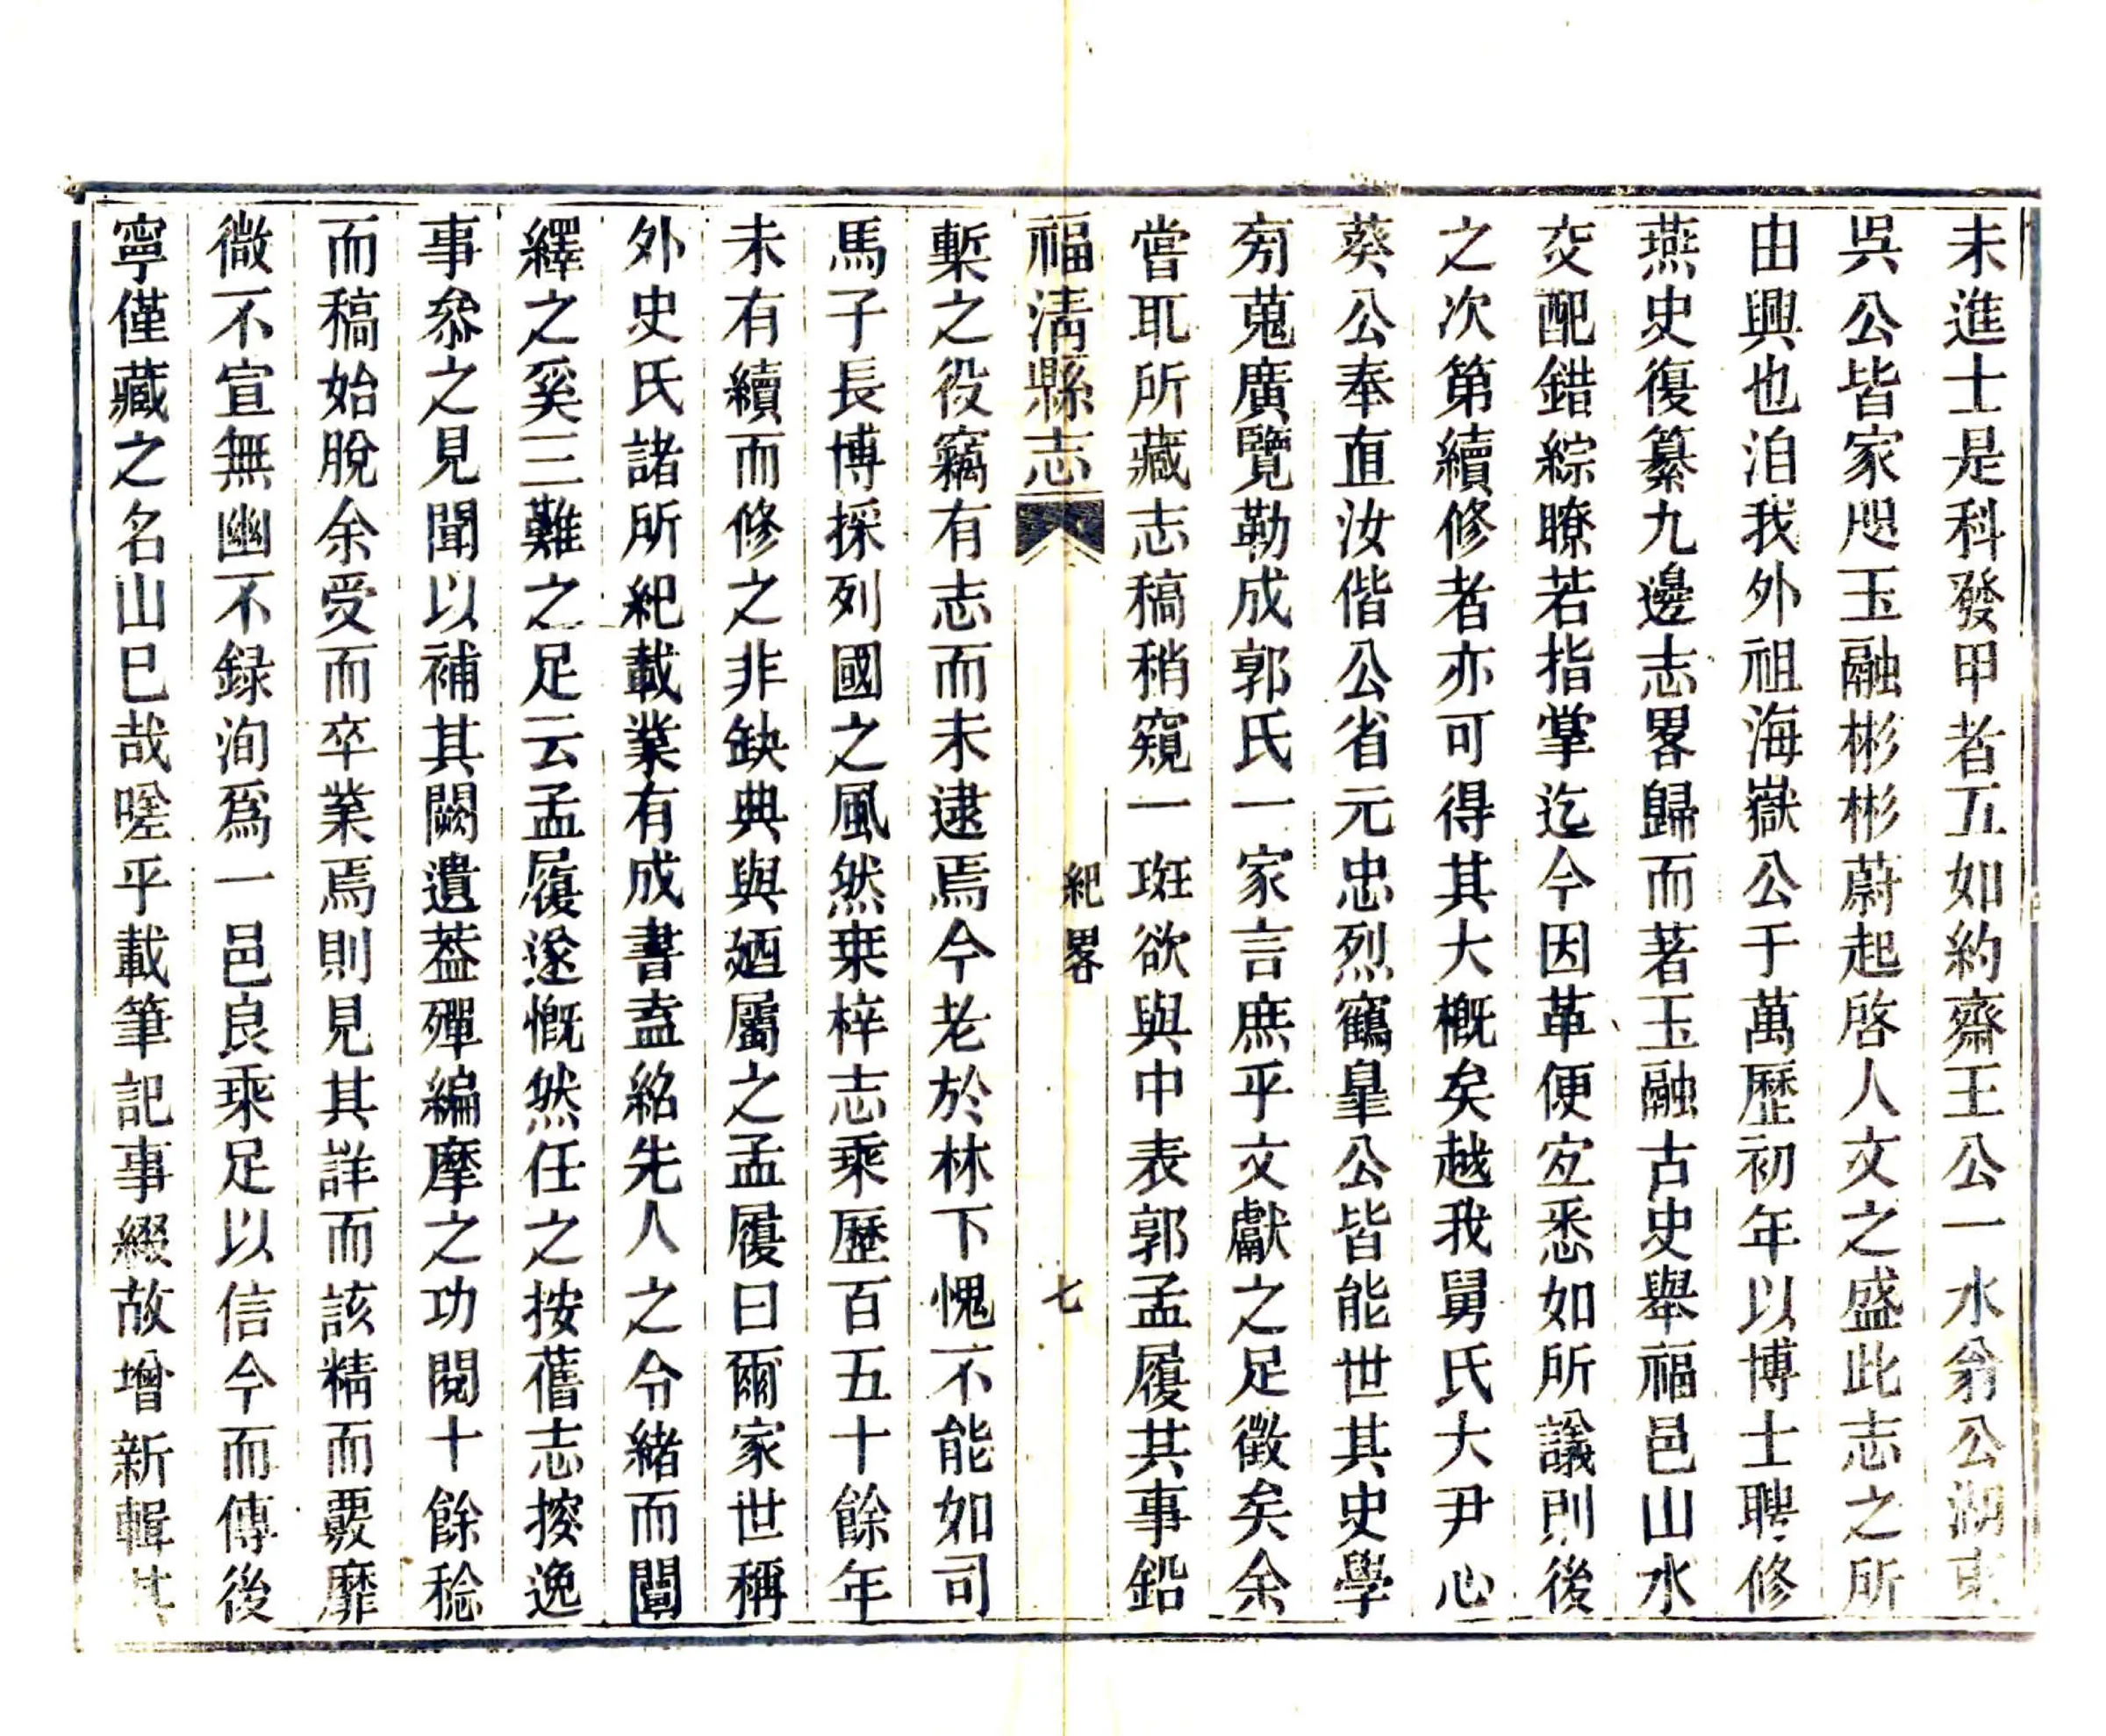 未進士是科發甲者五如約齋王公一水翁公湖東
吳公皆家咫玉融彬彬蔚起啓人文之盛此志之所
由興也洎我外祖海嶽公于萬歷初年以博士聘修
燕史復纂九邊志畧歸而著玉融古史舉福邑山水
交配錯綜瞭若指掌迄今因革便宐悉如所議則後
之次第續修者亦可得其大概矣越我舅氏大尹心
葵公奉直汝偕公省元忠烈鶴臯公皆能世其史學
旁蒐廣覽勒成郭氏一家言庶乎文獻之足徵矣余
嘗取所藏志稿稍窺一斑欲與中表郭孟履共事鉛
福淸縣志
紀畧
七
槧之役竊有志而未逮焉今老於林下愧不能如司
馬子長博採列國之風然桒梓志乘歷百五十餘年
未有續而修之非缺典與廼屬之孟履曰爾家世稱
外史氏諸所紀載業有成書盍紹先人之令緒而闡
繹之奚三難之足云孟履遂慨然任之按舊志㨮逸
事叅之見聞以補其闕遺葢殫編摩之功閱十餘稔
而稿始脫余受而卒業焉則見其詳而該精而覈靡
微不宣無幽不録洵爲一邑良乘足以信今而傳後
寧僅藏之名山已哉嗟乎載筆記事綴故增新輯其